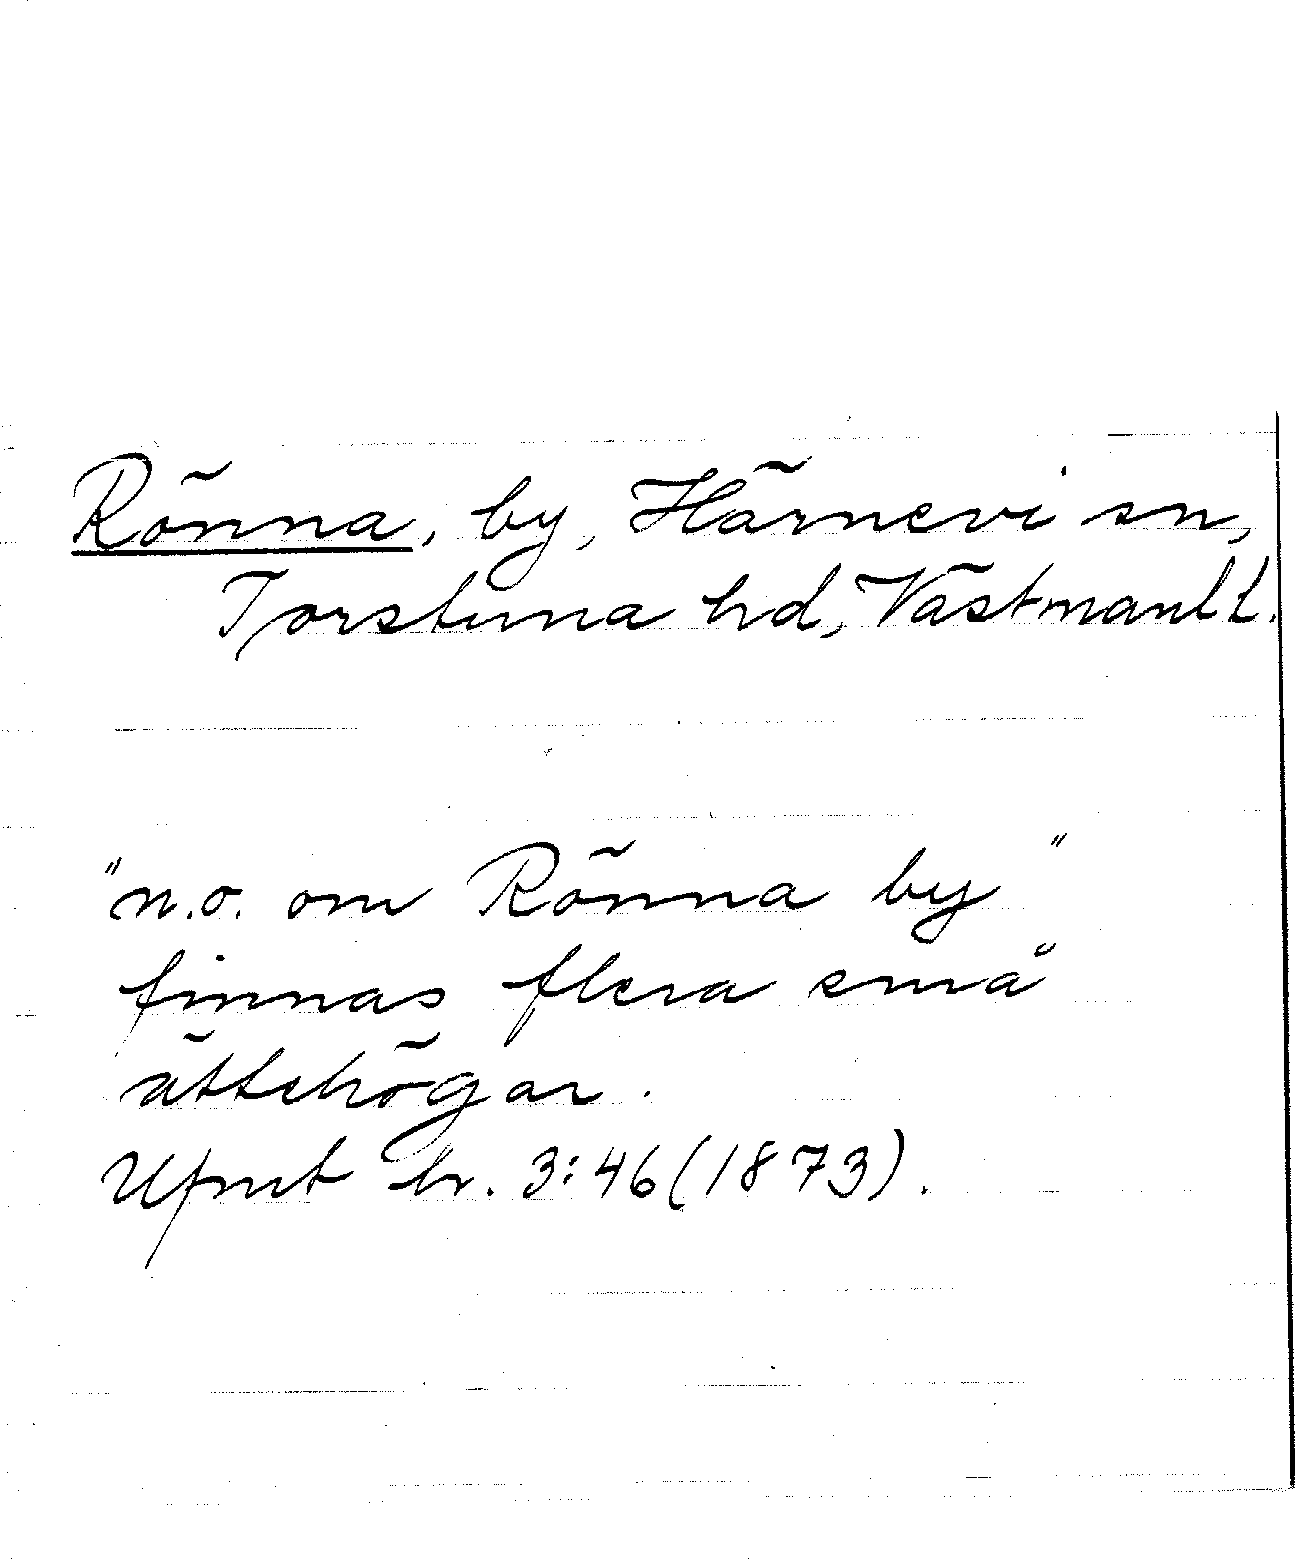 Rönna, by, Härnevi sn,
Torstuna hd, Västmanl l.
"n.o. om Rönna by"
finnas flera små
ättehögar.
Upmt hr. 3:46 (1873).